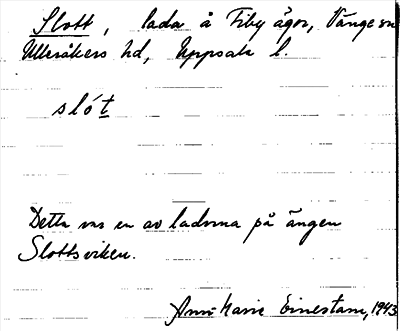 Slott, lada å Fiby ägor, Vänge sn
Ulleråkers hd, Uppsala l.
slót
Detta var en av ladorna på ängen
Slottsviken.
Ann-Marie Einestam, 1943